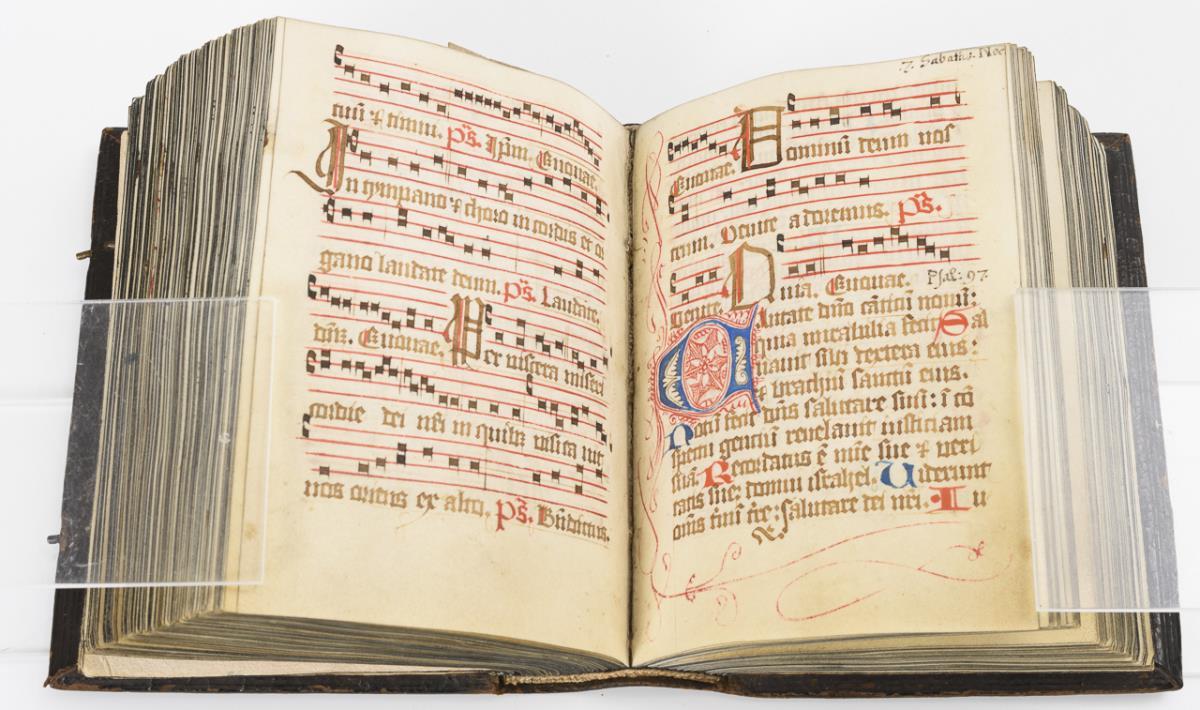 tiui ⁊ timui. ps. Ipm. Euouae.
In tympano ⁊ choro in cordis et or
gano laudate deum. ps. Laudate
dnr. Euouae. Per viscera miseri
cordie dei nri in quibz visita uit
nos oriens ex alto. ps. Bndictus.
7. Sabatis. Noc
Euouae. Dominum deum nos
trum. Venite adoremus. ps.
Venite. Euouae.
Psal: 97
Cantate dno canticum nouu:
quia mirabilia fecit Sal
uauit sibi dextera eius:
⁊ brachiu sanctu eius.
Notu fecit dns salutare suu: i co
spectu gentiu reuelauit iusticiam
sua. Recordatus e mie sue ⁊ veri
tatis sue: domui israhel. Viderunt
oms tmi tre: salutare dei nri. Iu